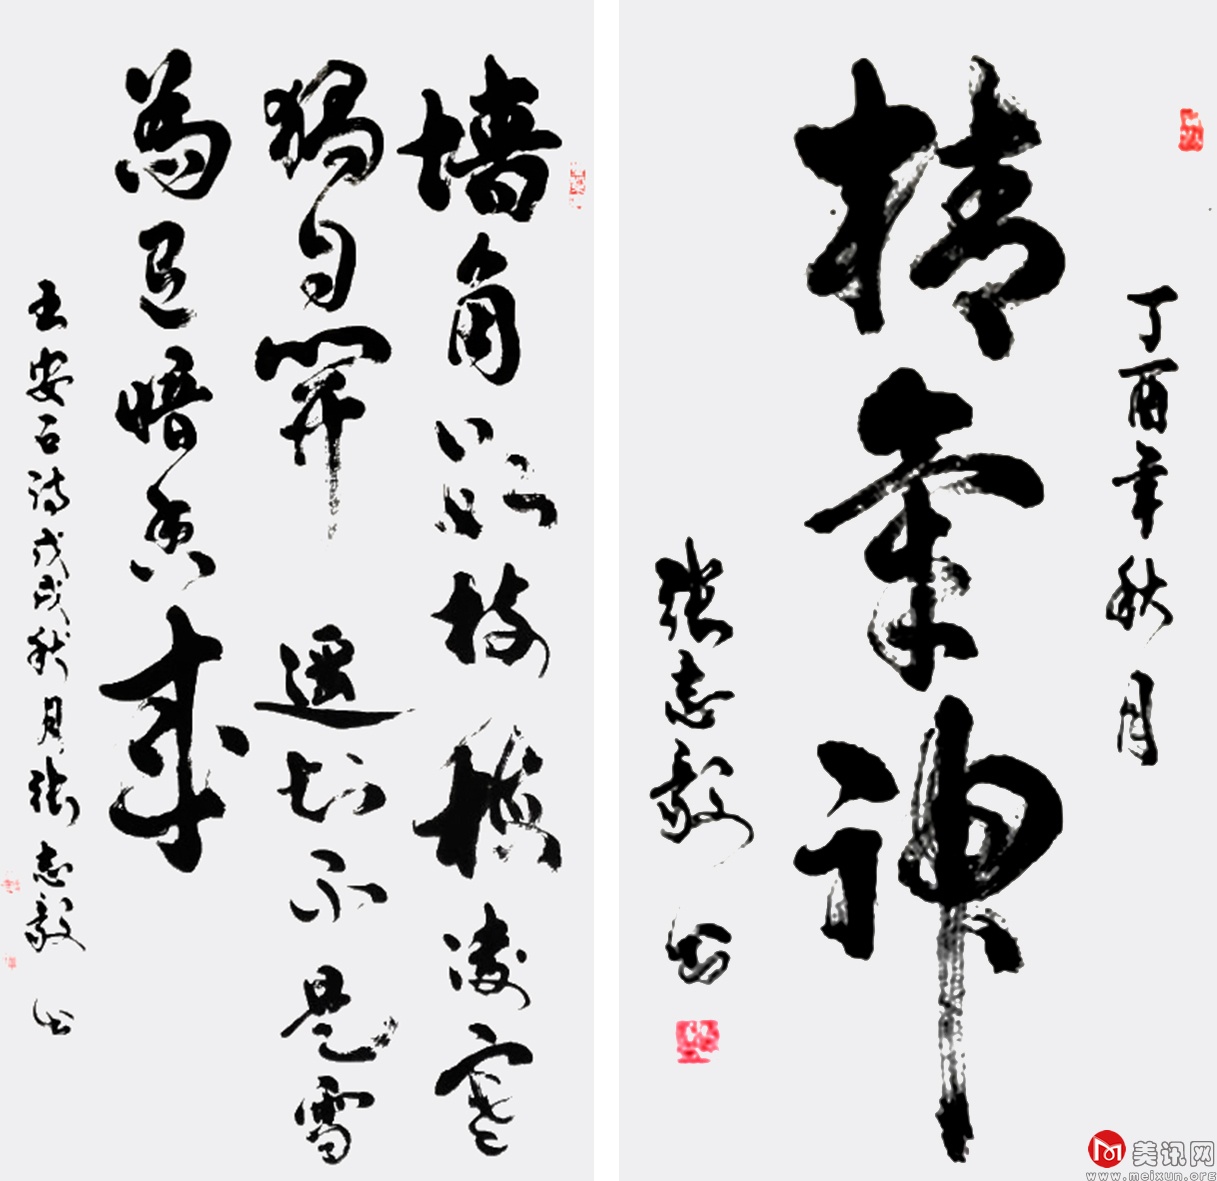 墙角数枝梅凌寒
獨自開遥知不是雪
為有暗香来
王安石诗戊戌秋月张志毅书
丁酉年秋月
精氣神
张志毅书
美讯网
www.meixun.org